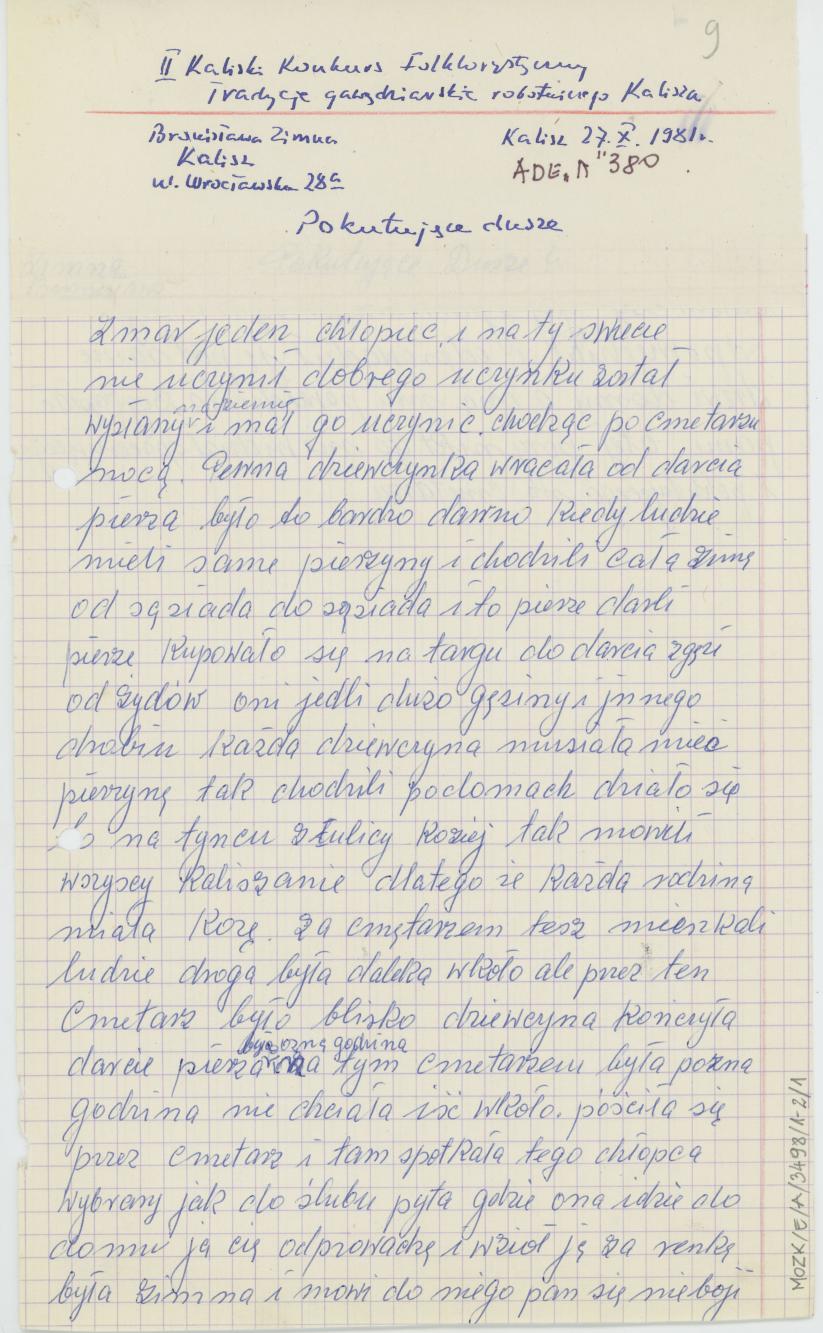 9
II Kaliski Konkurs Folklorystyczny
Tradycje gawędziarskie robotniczego Kalisza
Bronisława Zimna
Kalisz 27.X.1981r.
Kalisz
ADE„A"380
ul. Wrocławska 28a
Pokutujące dusze
Zmar jeden chłopiec i na ty świecie
nie uczynił dobrego uczynku został
na ziemię
wysłany i mał go uczynić. chodząc po cmetarzu
nocą. Pewna dziewczynka wracała od darcia
pierza było to bardzo dawno kiedy ludzie
mieli same pierzyny i chodzili całą zimę
od sąsiada do sąsiada i to pierze darli
pierze kupowało się na targu do darcia zgęsi
od żydów oni jedli dużo gęsiny i jnnego
drobiu każda dziewczyna musiała mieć
pierzynę tak chodzili podomach działo się
to na tyncu z ulicy Koziej tak mowili
wszyscy Kaliszanie dlatego że każda rodzina
miała Kozę. za cmętarzem tesz mieszkali
ludzie droga była daleka wkoło ale przez ten
Cmetarz było blisko dziewcyna kończyła
godzina
darcie pierza za tym cmetarzem była pozna
godzina nie chciała iść wkoło. pościła się
przez cmetarz i tam spotkała tego chłopca
wybrany jak do ślubu pyta gdzie ona idzie do
domu ja cię odprowadzę i wzioł ją za renkę
była zimna i mowi do niego pan się nieboji
MOZK/E/A/3498/1-2/1